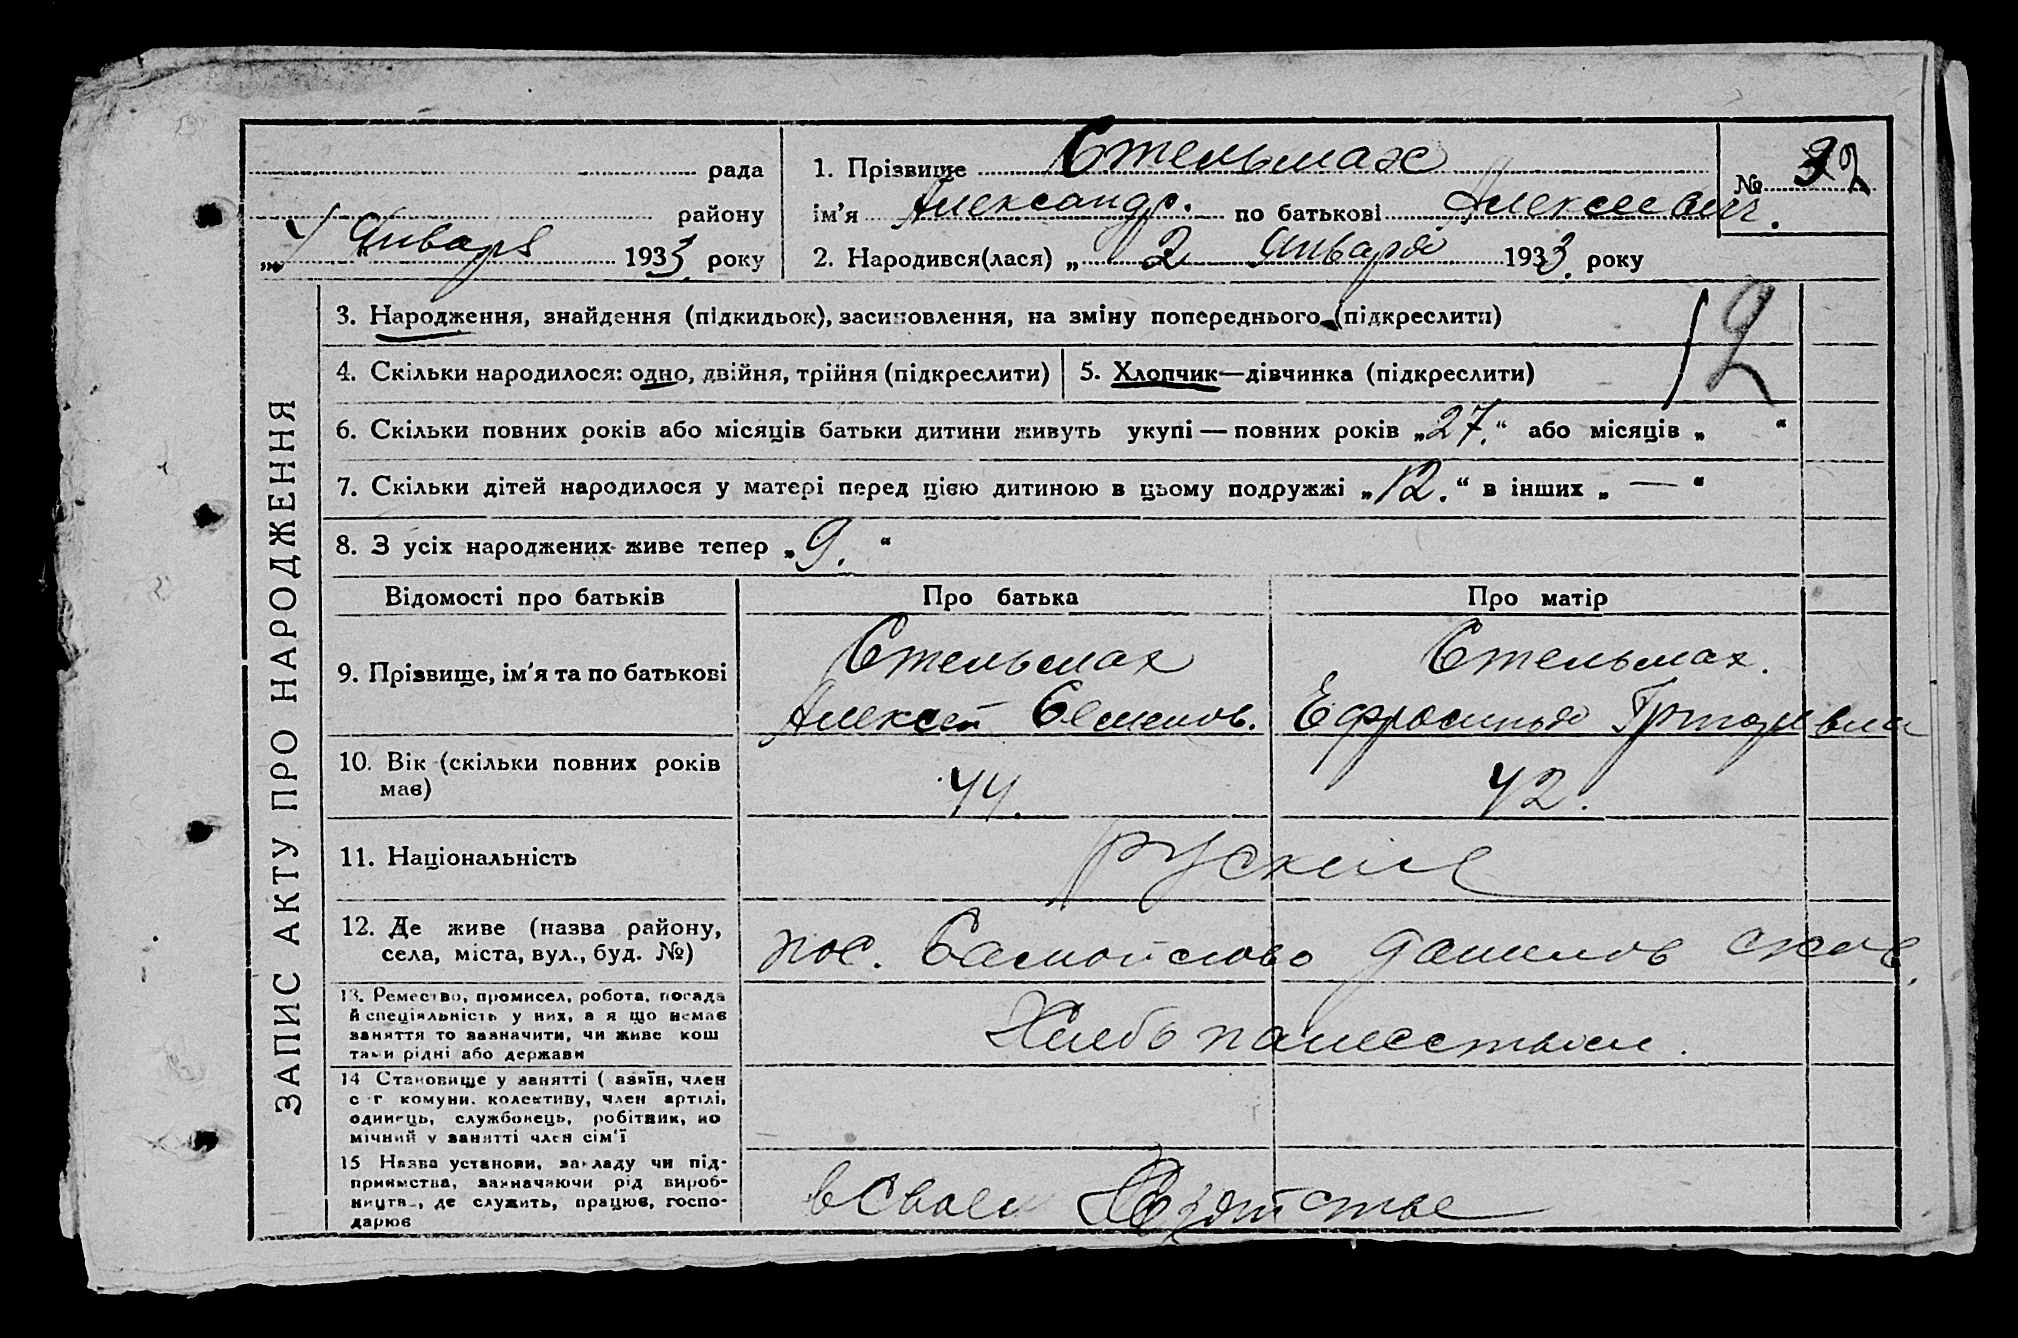 рада
району
„ 4 Январь 1933. року
1. Прізвище Стельмах
ім’я Александр. по батькові Алексеевич.
2. Народився(лася) „ 2 Января 1933. року
№
12
ЗАПИС АКТУ ПРО НАРОДЖЕННЯ
3. Народження, знайдення (підкидьок), засиновлення, на зміну попереднього (підкреслити)
4. Скільки народилося: одно, двійня, трійня (підкреслити)
5. Хлопчик—дівчинка (підкреслити)
6. Скільки повних років або місяців батьки дитини живуть укупі — повних років „27.“ або місяців „ “
7. Скільки дітей народилося у матері перед цією дитиною в цьому подружжі „12.“ в інших „ — “
8. З усіх народжених живе тепер „9.“
Відомості про батьків Про батька Про матір
9. Прізвище, ім’я та по батькові
Стельмах
Алексей Семенов.
Стельмах.
Ефросинья
10. Вік (скільки повних років
має)
44.
42.
11. Національність
руские
12. Де живе (назва району,
села, міста, вул., буд. №)
пос.
13. Ремество, промисел, робота, посада
й спеціяльність у них, а я що немає
заняття то зазначити, чи живе кош
тами рідні або держави
Хлебопашеством.
14 Становище у занятті ( хазяїн, член
с г комуни. колективу, член артілі,
одинець, службовець, робітник, по
мічний у занятті член сім’ї
15 Назва установи, закладу чи під-
приємства, зазначаючи рід вироб-
ництв., де служить, працює, госпо-
дарює
в своем Хозяйстве